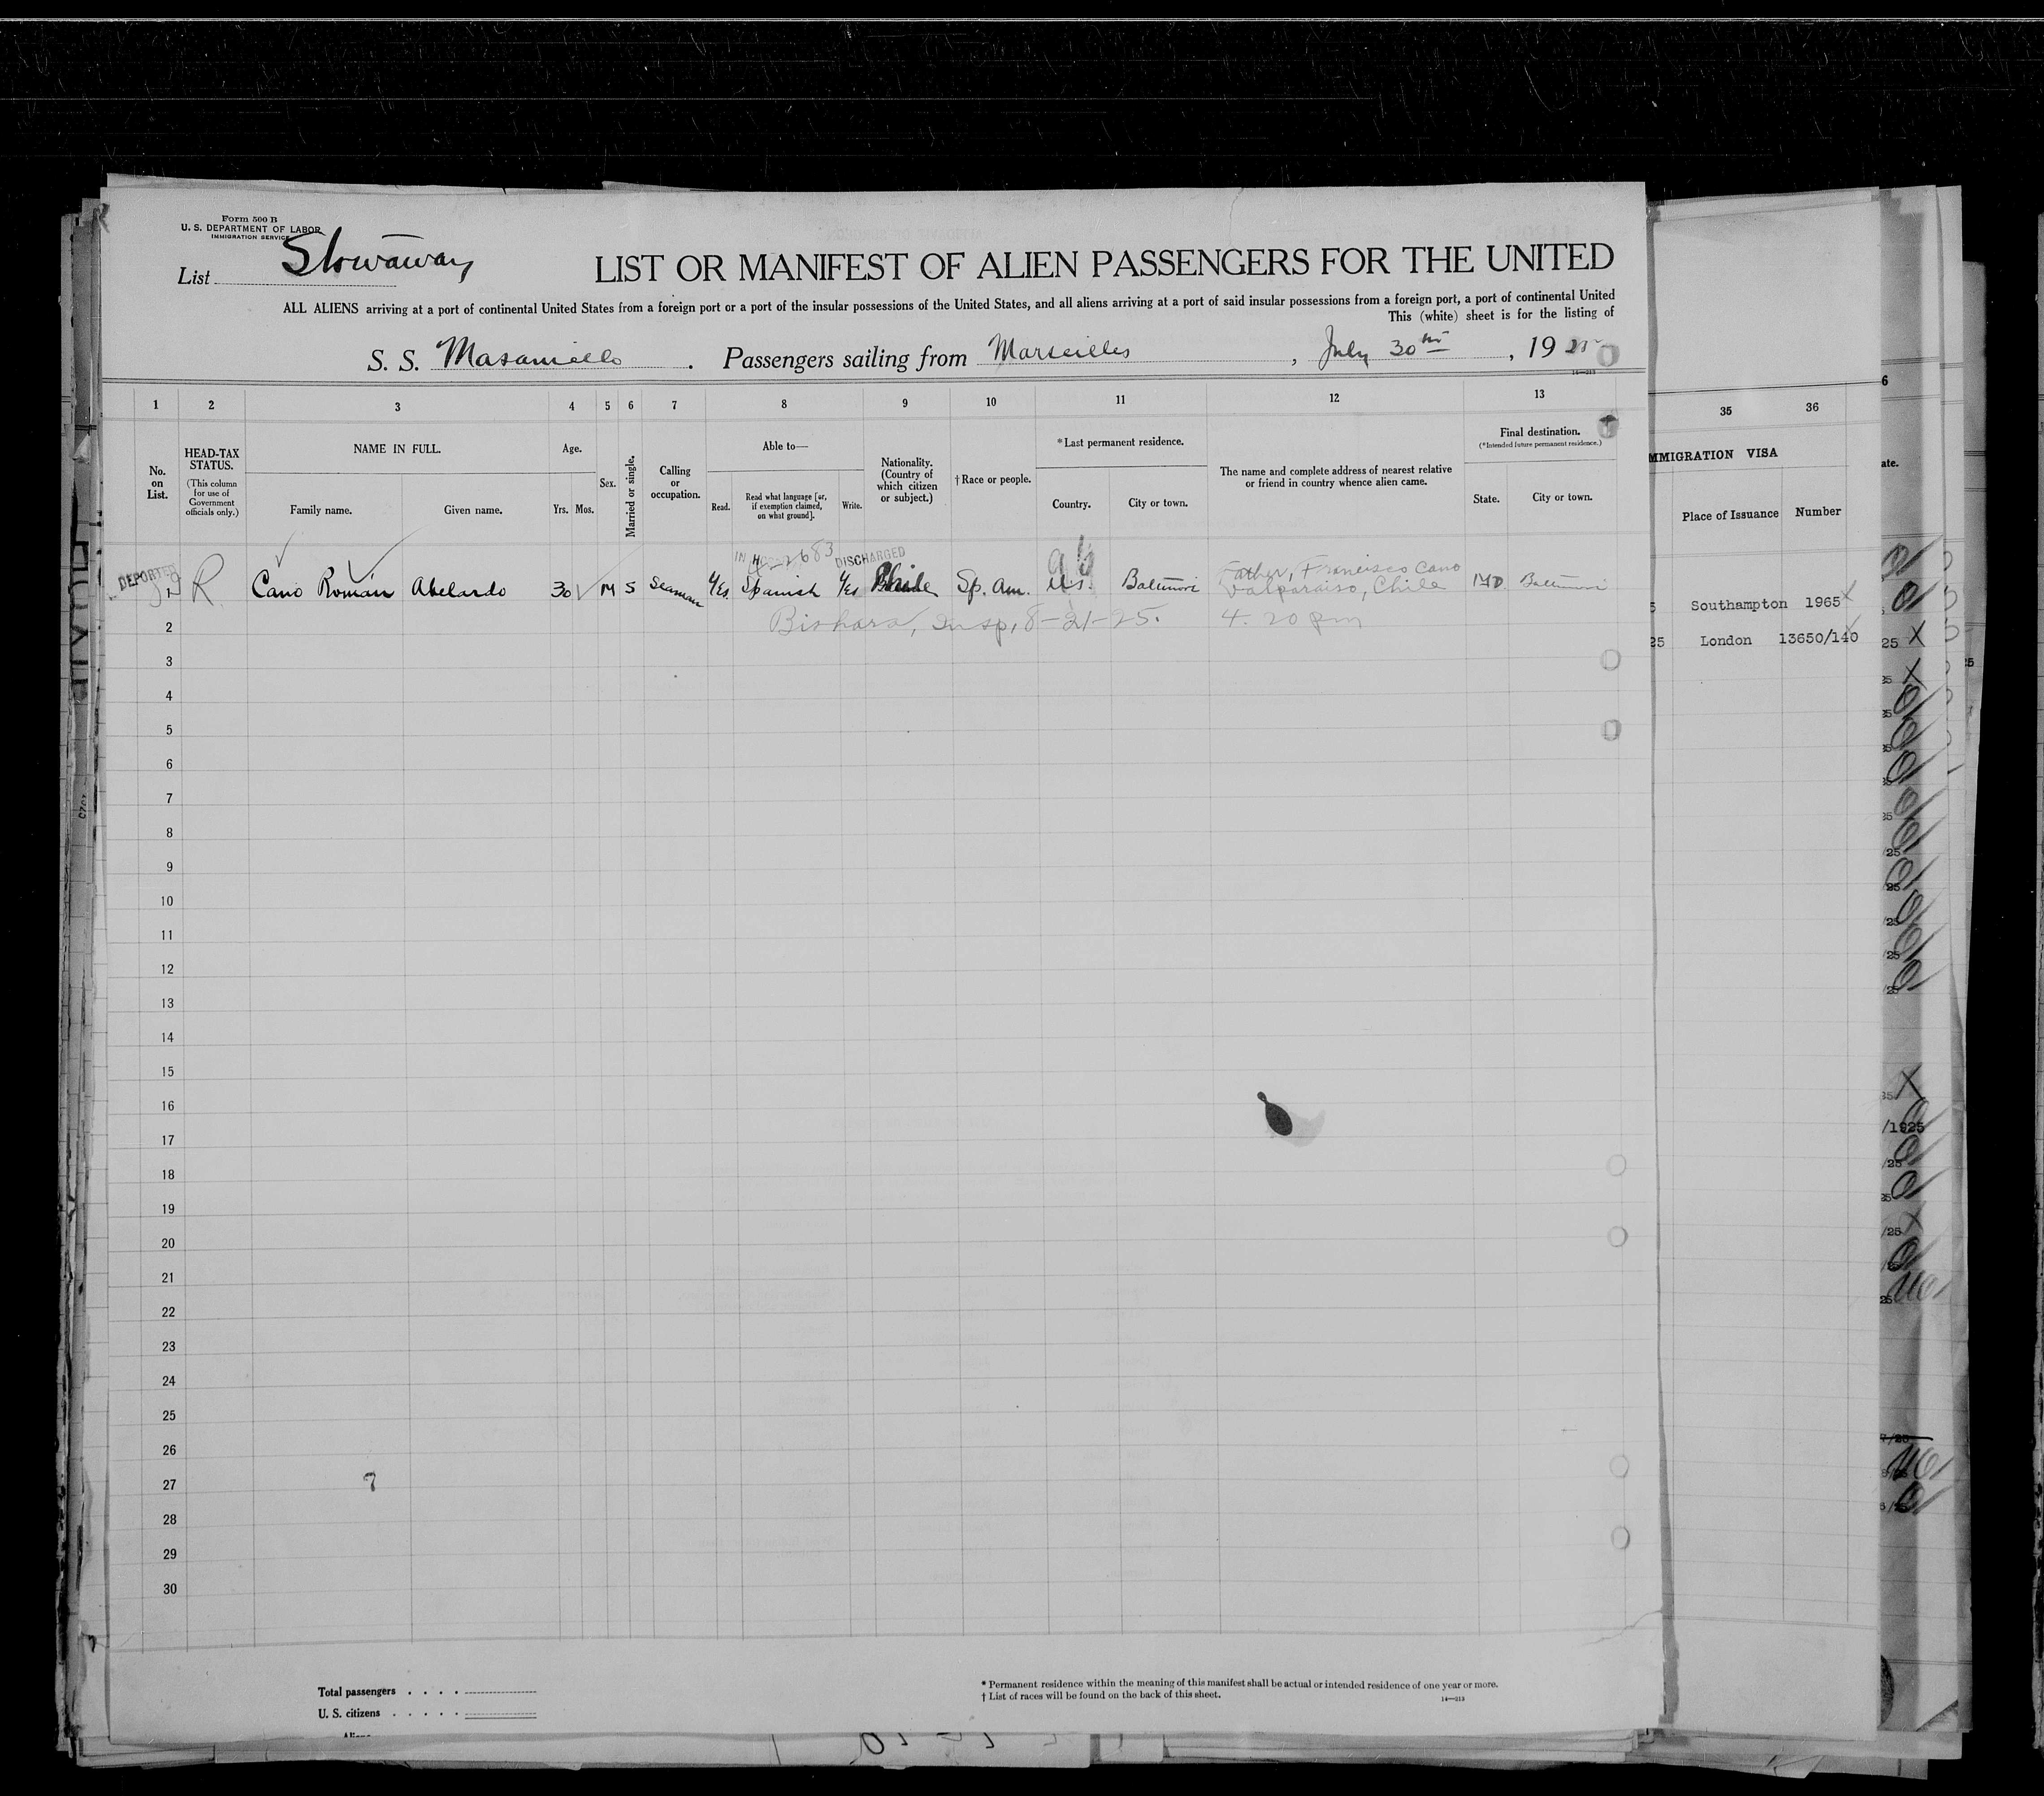 Form 500 B
U. S. DEPARTMENT OF LABOR
IMMIGRATION SERVICE
List Stowaway
LIST OR MANIFEST OF ALIEN PASSENGERS FOR THE UNITED
ALL ALIENS arriving at a port of continental United States from a foreign port or a port of the insular possessions of the United States, and all aliens arriving at a port of said insular possessions from a foreign port, a port of continental United
This (white) sheet is for the listing of
S. S. Masaniello. Passengers sailing from Marseilles, July 30th, 19 25
14—213
1 2 3 4 5 6 7 8 9 10 11 12 13
No. on List.
HEAD-TAX STATUS.
(This column for use of Government officials only.)
NAME IN FULL.
Family name. Given name.
Age.
Yrs. Mos.
Sex.
Married or single.
Calling or occupation.
Able to—
Read. Read what language [or, if exemption claimed, on what ground]. Write.
Nationality. (Country of which citizen or subject.)
† Race or people.
* Last permanent residence.
Country. City or town.
The name and complete address of nearest relative or friend in country whence alien came.
Final destination.
(* Intended future permanent residence.)
State. City or town.
35 36
IMMIGRATION VISA
Place of Issuance Number
6
ate.
DEPORTED
2683 DISCHARGED
1 R Cano Román Abelardo 30 M S Seaman Yes Spanish Yes Chile Sp. Am. U.S. Baltimore Father, Francisco Cano Valparaiso, Chile MD. Baltimore
2 Bishara, Insp, 8-21-25. 4.20 pm
3
4
5
6
7
8
9
10
11
12
13
14
15
16
17
18
19
20
21
22
23
24
25
26
27
28
29
30
Southampton 1965
25 London 13650/140
Total passengers
U. S. citizens
Aliens
* Permanent residence within the meaning of this manifest shall be actual or intended residence of one year or more.
† List of races will be found on the back of this sheet.
14—213